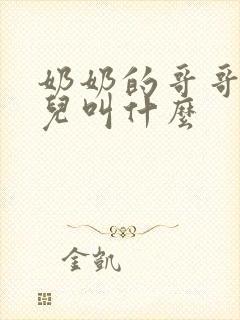 奶奶的哥哥
兒叫什麼
金凯